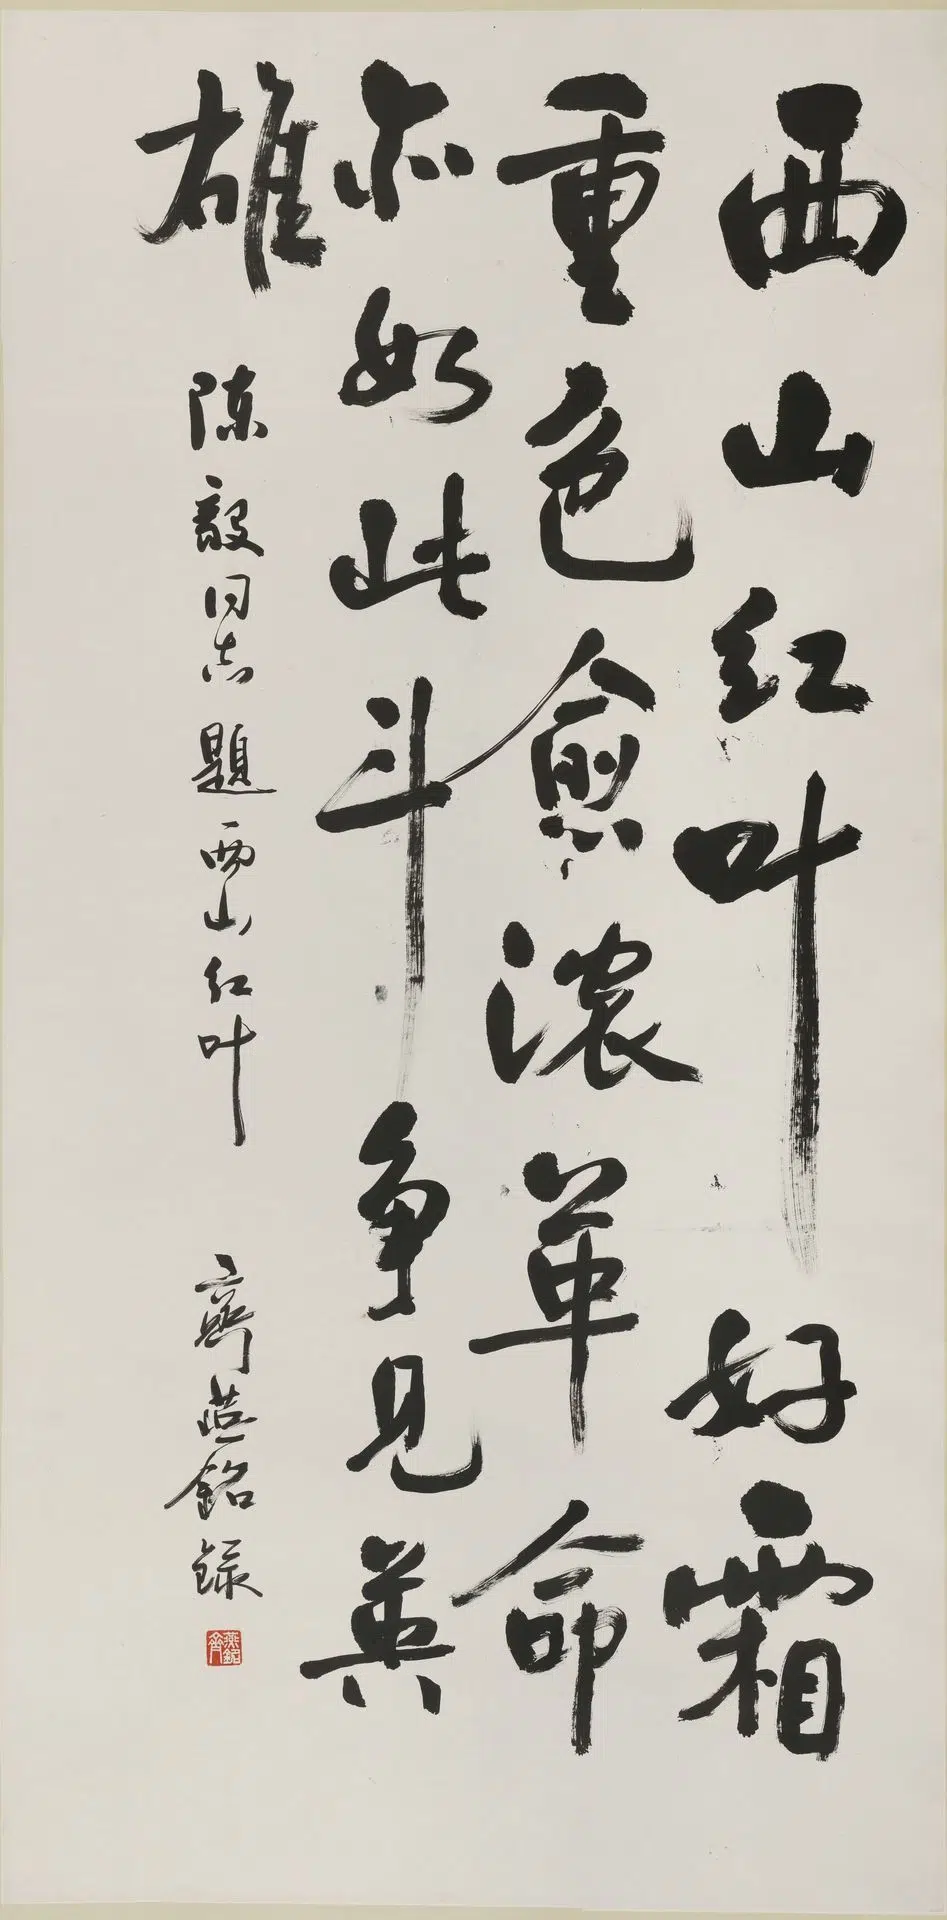 西山红叶好霜
重色愈浓革命
亦如此斗争见英
雄
陈毅同志题西山红叶
齐燕铭录
燕铭
齐